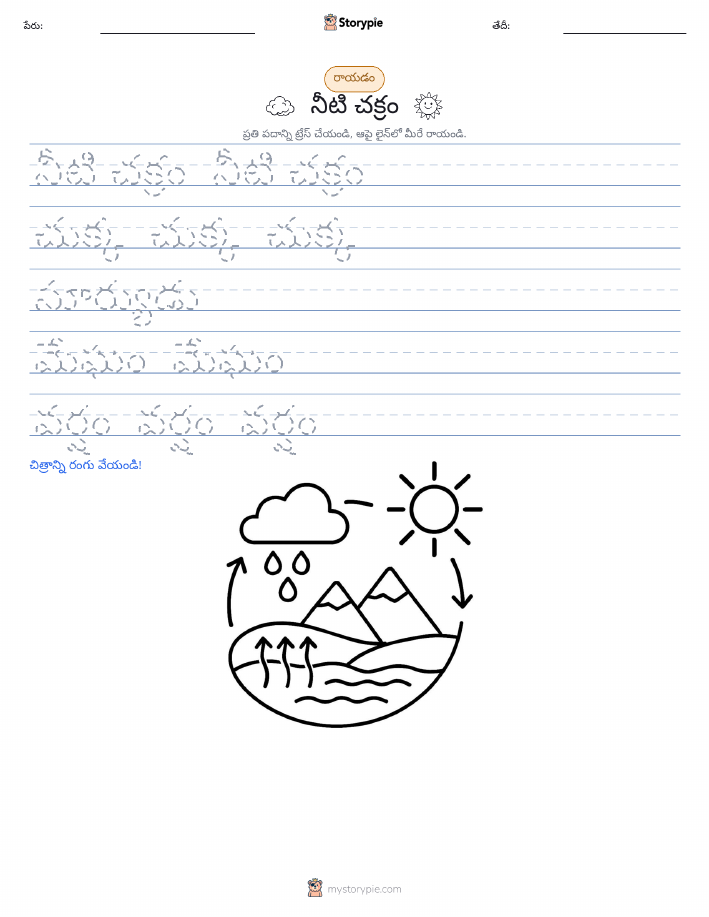 పేరు:
Storypie
తేదీ:
రాయడం
నీటి చక్రం
ప్రతి పదాన్ని ట్రేస్ చేయండి, ఆపై లైన్‌లో మీరే రాయండి.
నీటి చక్రం నీటి చక్రం
చుక్క చుక్క చుక్క
సూర్యుడు
మేఘం మేఘం
వర్షం వర్షం వర్షం
చిత్రాన్ని రంగు వేయండి!
mystorypie.com